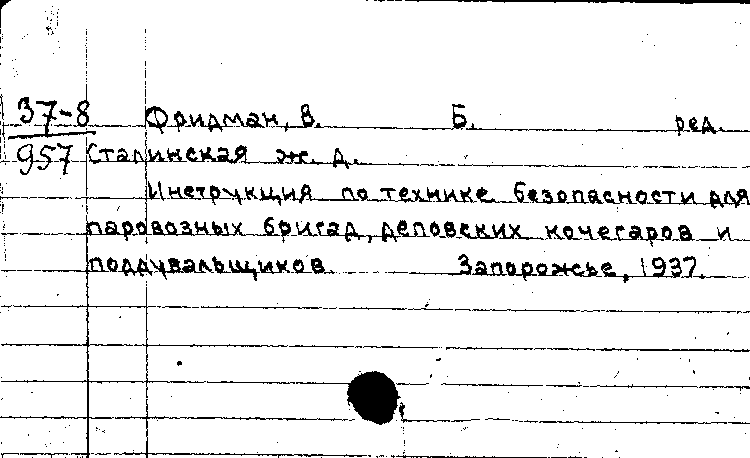 37-8 Фридман, В. Б. ред.
957 Сталинская ж. д.
Инструкция по технике безопасности для
паровозных бригад, деповских кочегаров и
поддувальщиков. Запорожье, 1937.